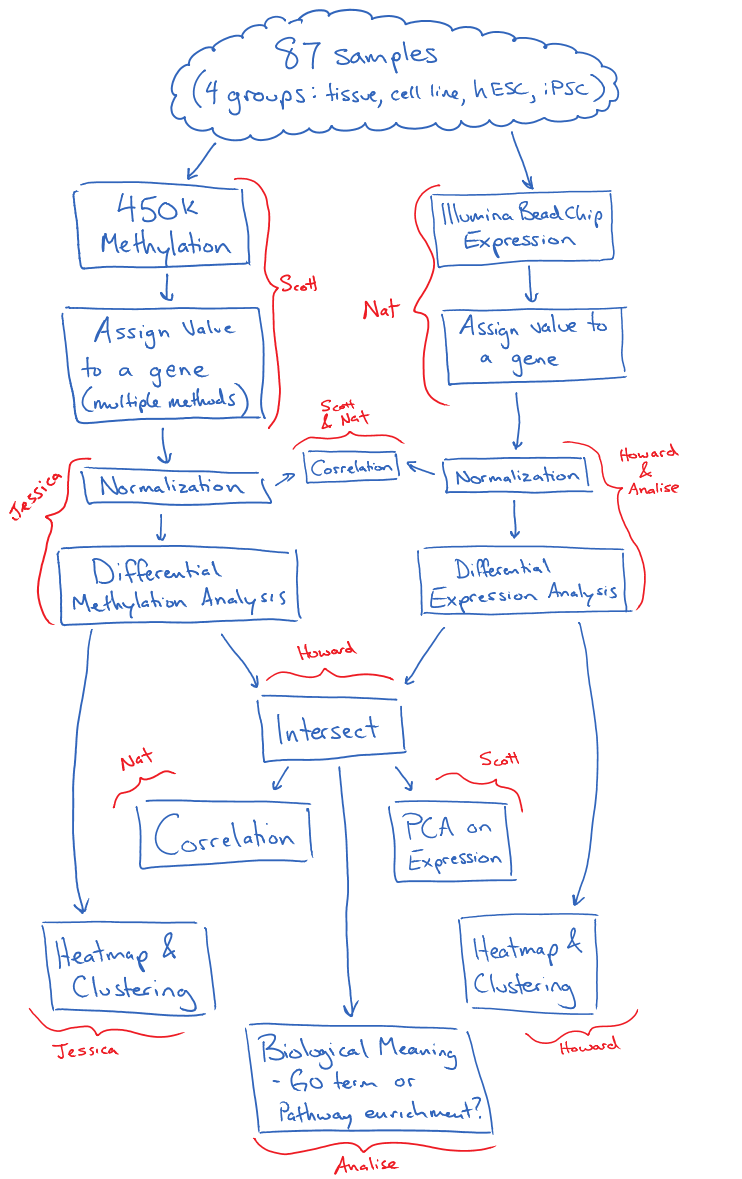 87 samples
(4 groups: tissue, cell line, hESC, iPSC)
450k
Methylation
Scott
Illumina BeadChip
Expression
Nat
Assign Value
to a gene
(multiple methods)
Assign value to
a gene
Scott
& Nat
Correlation
Jessica
Normalization
Normalization
Howard
&
Analise
Differential
Methylation Analysis
Differential
Expression Analysis
Howard
Intersect
Nat
Correlation
Scott
PCA on
Expression
Heatmap &
Clustering
Jessica
Heatmap &
Clustering
Howard
Biological Meaning
- GO term or
Pathway enrichment?
Analise